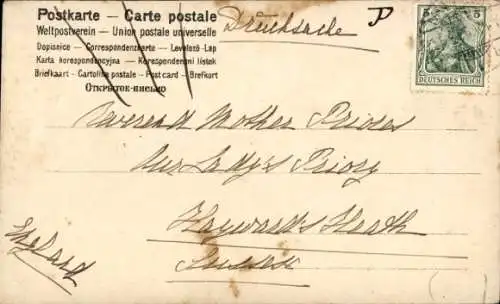 Postkarte — Carte postale
Weltpostverein — Union postale universelle
Dopisnice - Correspondenzkarte - Levelező-Lap
Karta korespondencyjna - Korespondenční lístek
Briefkaart - Cartolina postale - Post card - Brefkort
Открытое-письмо
Drucksache
5 5
DEUTSCHES REICH
Reverend Mother Prioress
Our Lady's Priory
Haywards Heath
Sussex
England